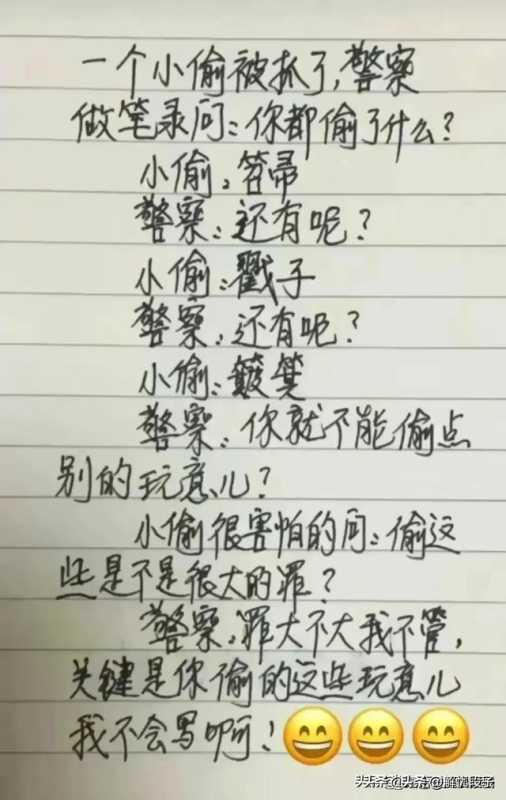 一个小偷被抓了,警察
做笔录问:你都偷了什么?
小偷:笤帚
警察:还有呢?
小偷:戳子
警察:还有呢?
小偷:簸箕
警察:你就不能偷点
别的玩意儿?
小偷很害怕的问:偷这
些是不是很大的罪?
警察:罪大不大我不管,
关键是你偷的这些玩意儿
我不会写啊!😄😄😄
头条 @